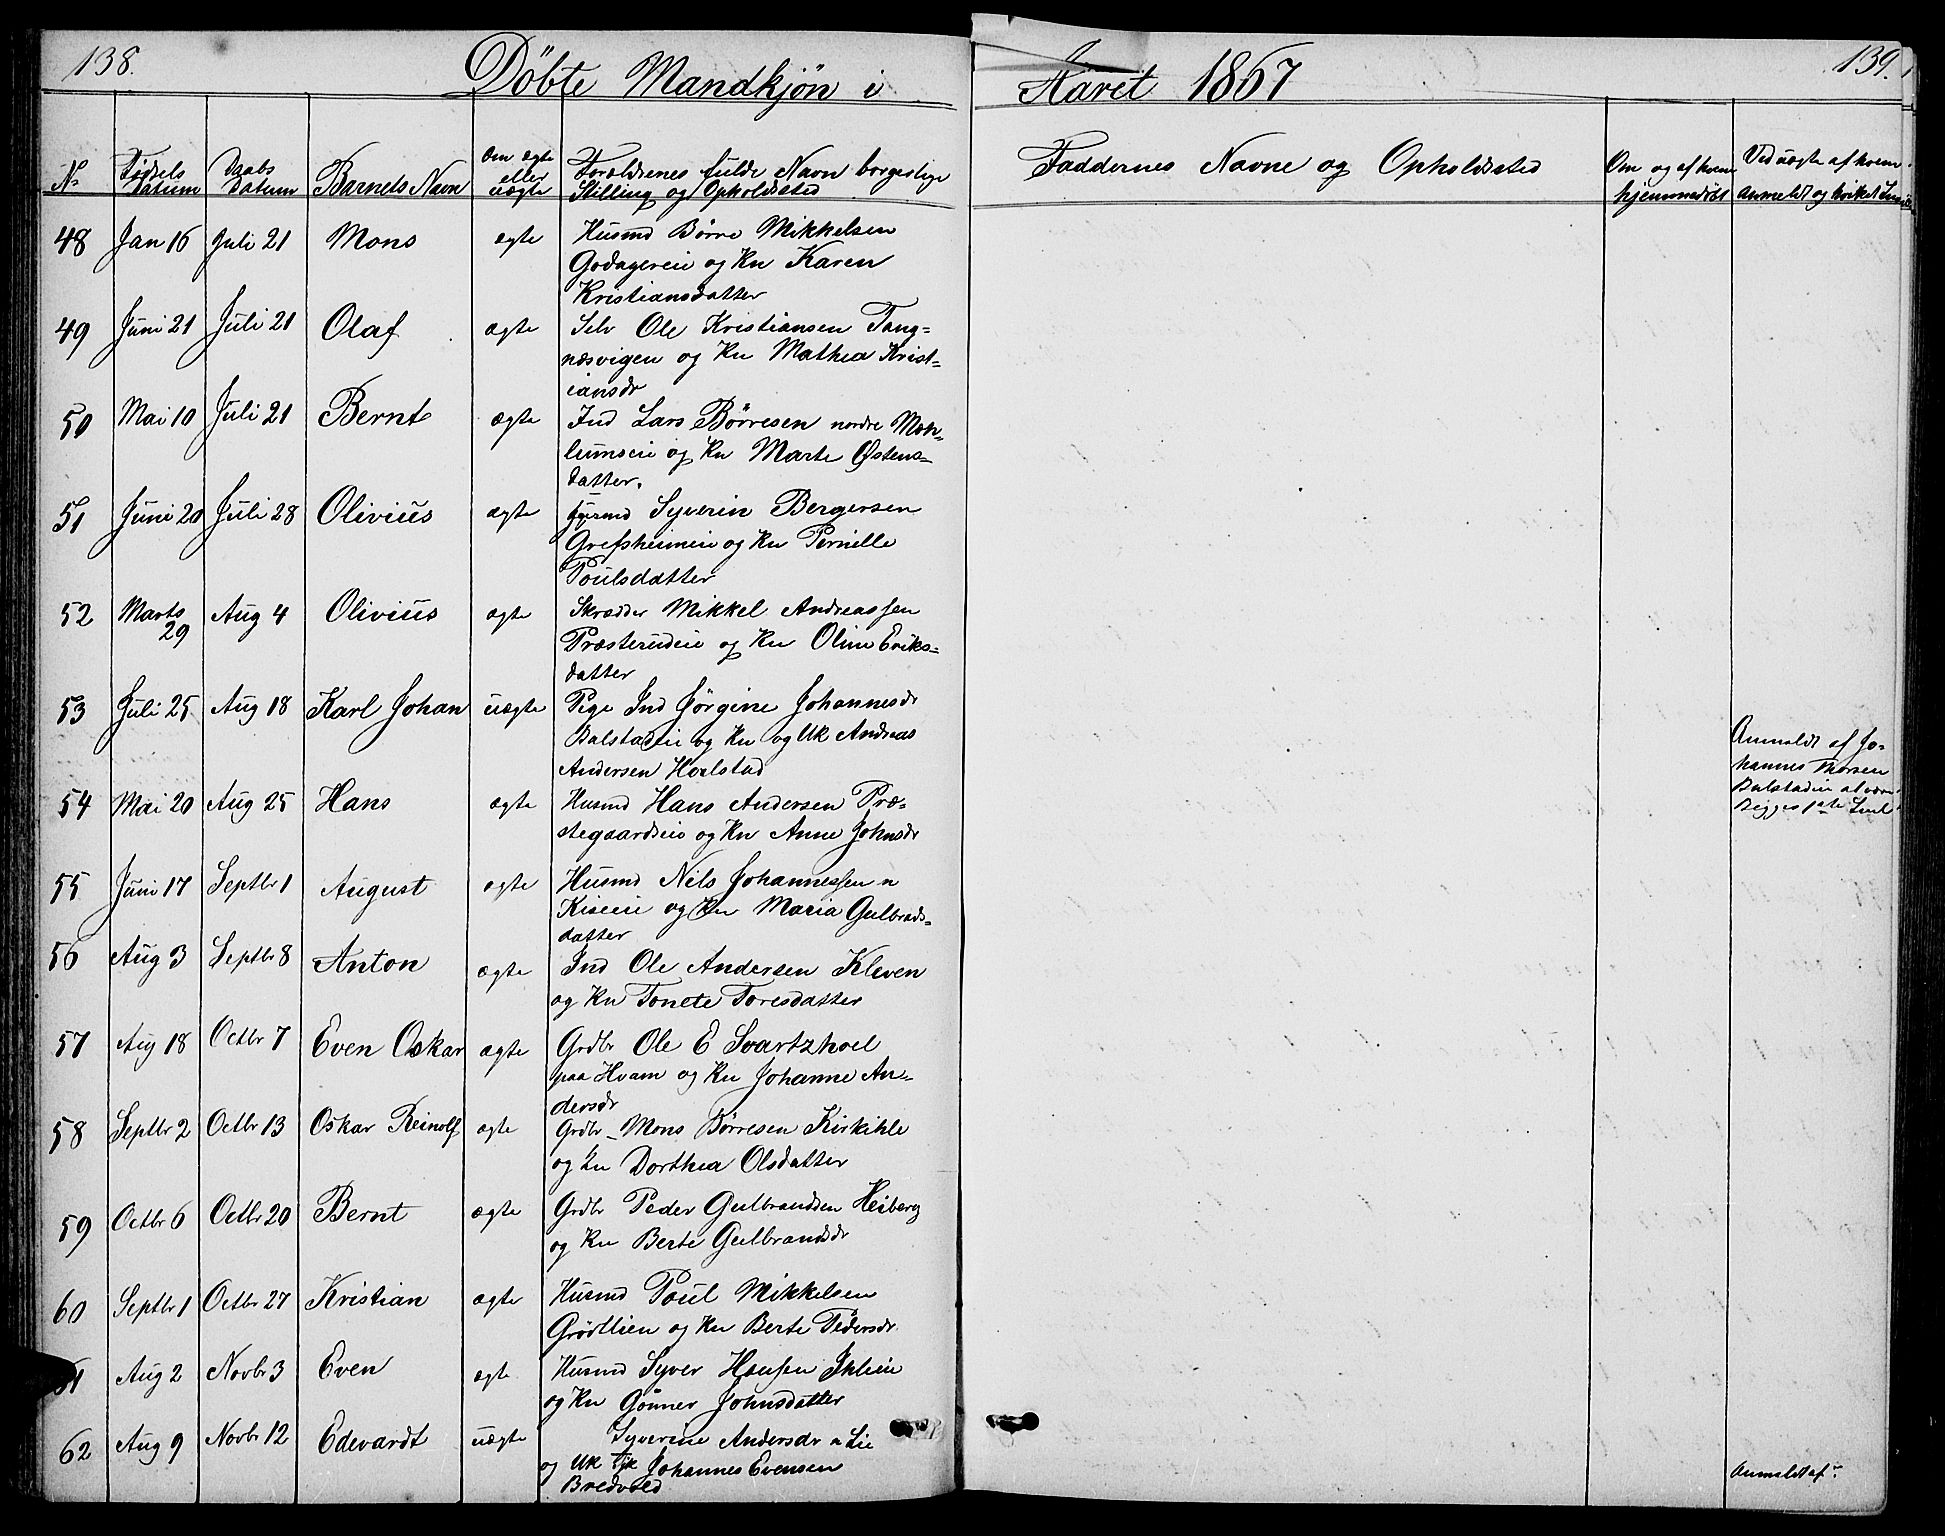 138.
Döbte Mandkjön i
Aaret 1867
139.
No
Födsels Datum
Daabs Datum
Barnets Navn
Om ægte eller uægte
Forældrenes fulde Navn borgerlige
Stilling og Opholdsted
Faddernes Navne og Opholdsted
Om og af hvem
hjemmedöbt
Ved uægte af hvem
anmeldt og hvilket
48 Jan 16 Juli 21 Mons ægte Husmd Börre Mikkelsen
Godagereie og Kn Karen
Kristiansdatter
49 Juni 21 Juli 21 Olaf ægte Selv Ole Kristiansen Tang=
næsvigen og Kn Mathea Krist=
iansdr
50 Mai 10 Juli 21 Bernt ægte Ind Lars Börresen nordre Moh=
lumseie og Kn Marte Østens=
datter.
51 Juni 20 Juli 28 Olivius ægte Syverin Bergersen
Grefsheimeie og Kn Pernille
Poulsdatter
52 Marts 29 Aug 4 Olivius ægte Skrædder Mikkel Andreassen
Præsterudeie og Kn Oline Eriks=
datter
53 Juli 25 Aug 18 Karl Johan uægte Pige Ind Jörgine Johannesdr
Balstadeie og Kn og Uk Andreas
Andersen Hoelstad
Anmeldt af Jo=
hannes Thorsen
Balstadeie at være
Begges 1ste
54 Mai 20 Aug 25 Hans ægte Husmd Hans Andersen Præ=
stegaardseie og Kn Anne Johnsdr
55 Juni 17 Septbr 1 August ægte Husmd Nils Johannessen n
Kiseeie og Kn Maria Gulbrads=
datter
56 Aug 3 Septbr 8 Anton ægte Ind Ole Andersen Kleven
og Kn Tonete Toresdatter
57 Aug 18 Octbr 7 Even Oskar ægte Grdbr Ole E Svartzhoel
paa Hvam og Kn Johanne An=
dersdr
58 Septbr 2 Octbr 13 Oskar Reinolf ægte Grdbr Mons Börresen Kirkihle
og Kn Dorthea Olsdatter
59 Octbr 6 Octbr 20 Bernt ægte Grdbr Peder Gulbrandsen Heiberg
og Kn Berte Gulbrandsdr
60 Septbr 1 Octbr 27 Kristian ægte Husmd Poul Mikkelsen
Grödtlien og Kn Berte Pedersdr
61 Aug 2 Novbr 3 Even ægte Husmd Syver Hansen Ihleie
og Kn Gönner Johnsdatter
62 Aug 9 Novbr 12 Edevardt uægte Syverine Andersdr n Lie
og Uk Tjk Johannes Evensen
Bredvold
Anmeldt af